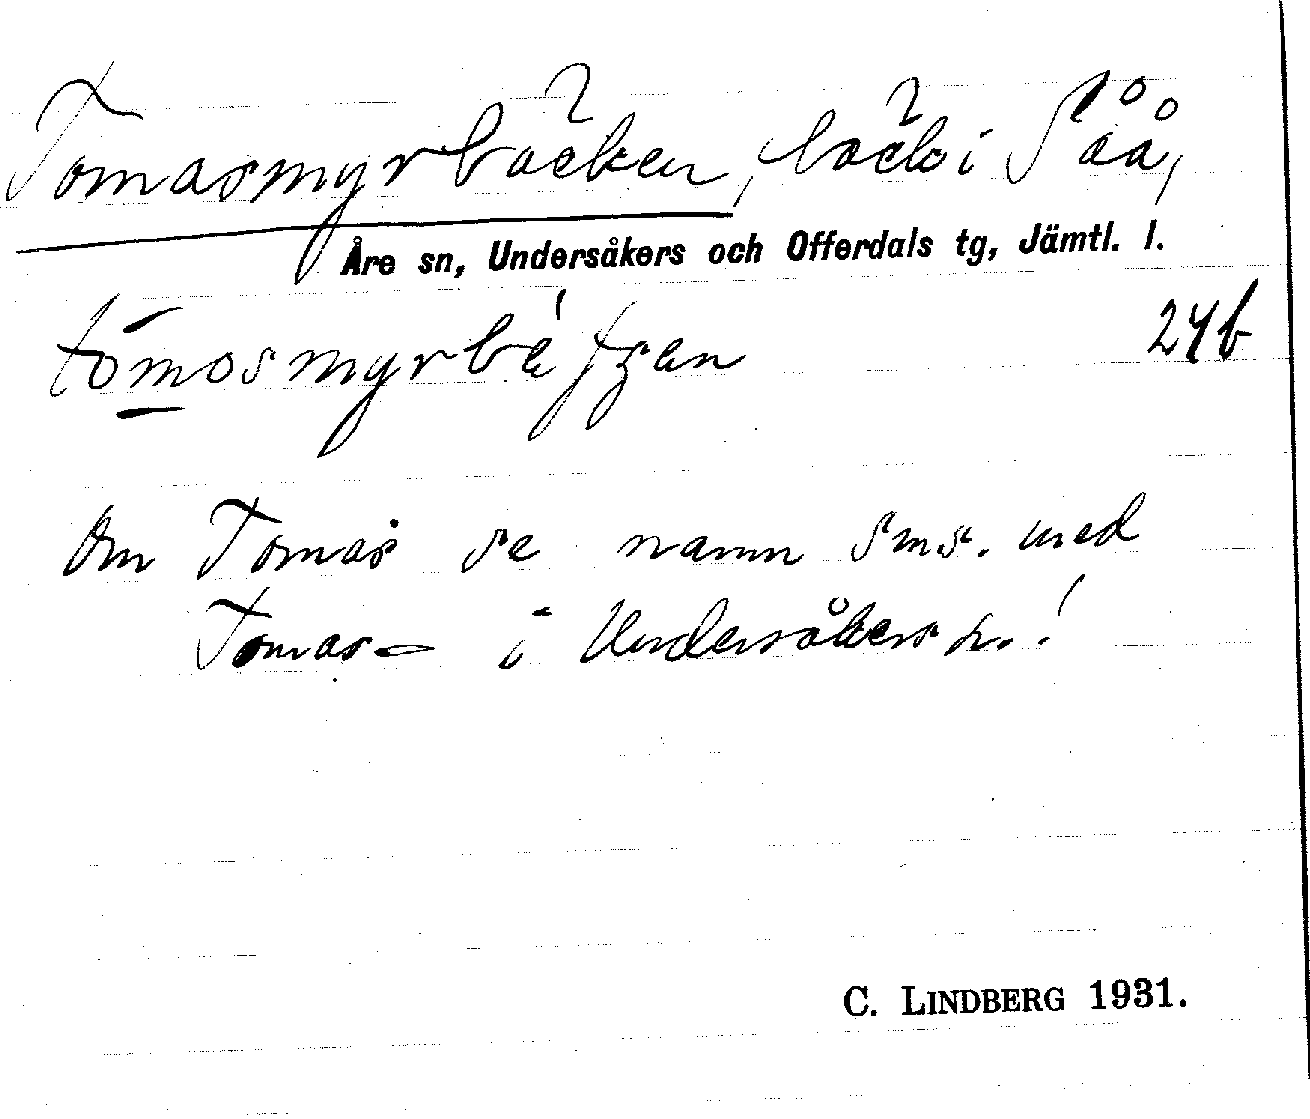 Tomasmyrbäcken, bäck i Såå,
Åre sn, Undersåkers och Offerdals tg, Jämtl. l.
24b
Om Tomas se namn sms. med
Tomas- i Undersåkers sn.!
C. LINDBERG 1931.